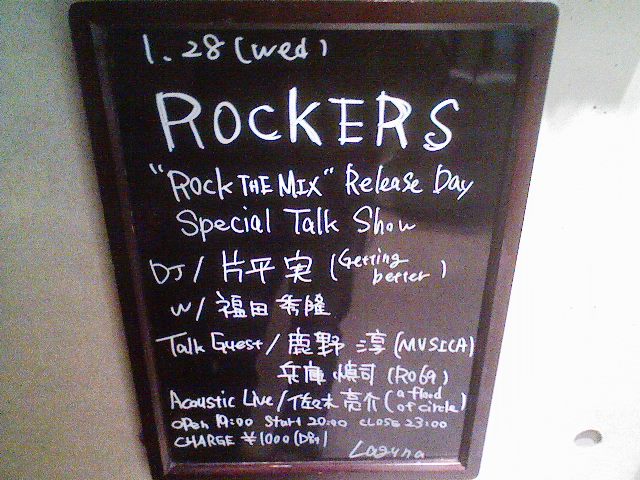 1.28(wed)
ROCKERS
"ROCK THE MIX" Release Day
Special Talk Show
DJ/片平 実 (Getting better)
w/福田 秀隆
Talk Guest/鹿野 淳(MUSICA)
兵庫 慎司(RO69)
Acoustic Live/佐々木 亮介(a flood of circle)
OPEN 19:00 Start 20:00 CLOSE 23:00
CHARGE ¥1000(
Laguna